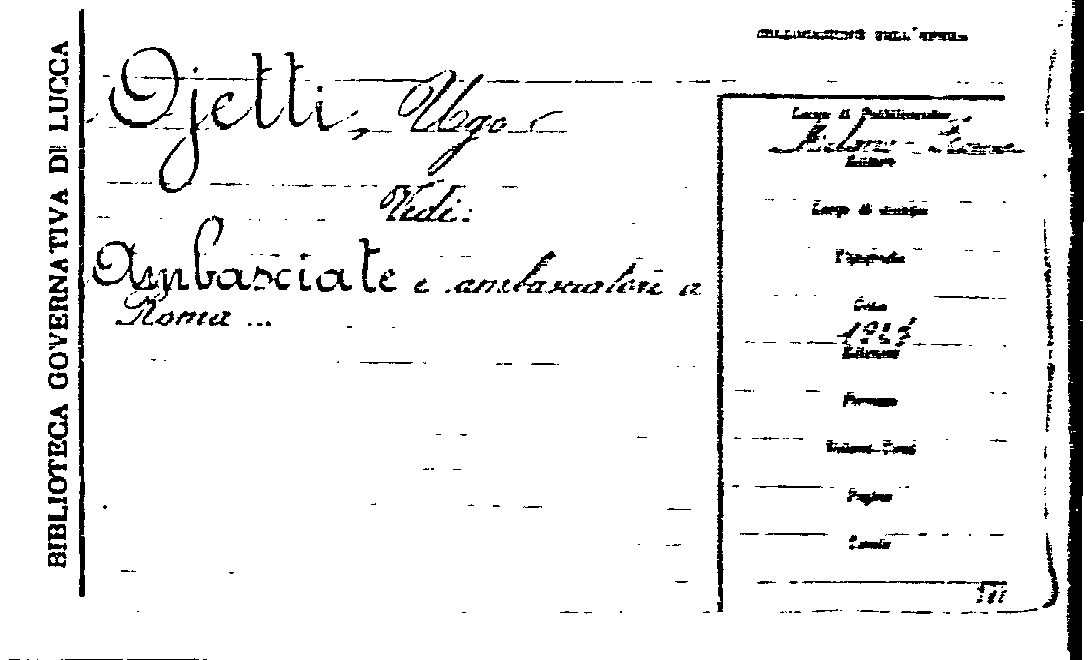 BIBLIOTECA GOVERNATIVA DI LUCCA
COLLOCAZIONE DELL'OPERA
Ojetti, Ugo
Vedi:
Ambasciate e ambasciatori a
Roma ...
Luogo di Pubblicazione
Milano - Roma
Editore
Luogo di stampa
Tipografia
Data
Edizione
Formato
Volumi-Tomi
Pagine
Tavole